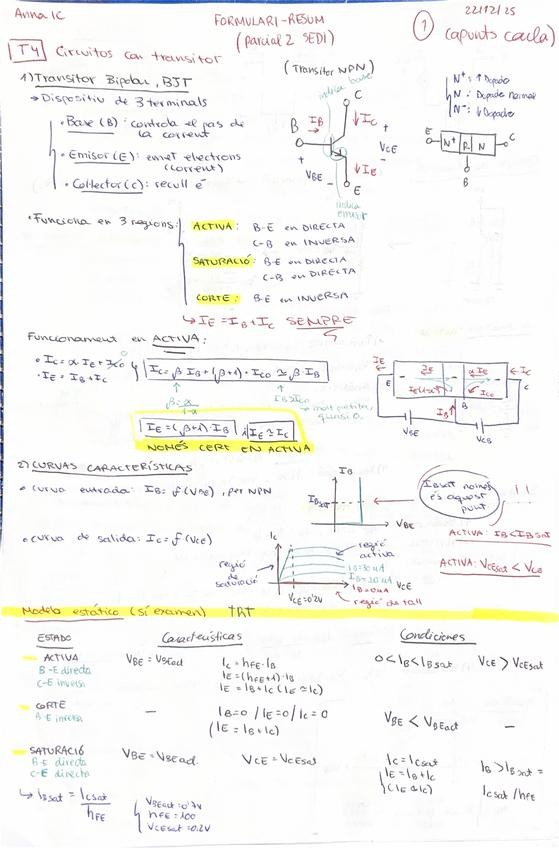 Anna 1C
FORMULARI-RESUM
(Parcial 2 SEDI)
1
22/12/25
(apunts caula)
T4 Circuitos con transitor
1) Transitor Bipolar, BJT
→ Dispositiu de 3 terminals
• Base (B): controla el pas de la corrent
• Emisor (E): emet electrons (corrent)
• Collector (C): recull e⁻
(Transitor NPN)
indica base
C
IC
B
IB
+
VBE
-
+
VCE
-
IE
E
indica emisor
N⁺: ↑ Dopador
N: Dopador normal
N⁻: ↓ Dopador
E
N⁺ P N
C
B
• Funciona en 3 regions:
ACTIVA: B-E en DIRECTA
C-B en INVERSA
SATURACIÓ: B-E en DIRECTA
C-B en DIRECTA
CORTE: B-E en INVERSA
↳ IE = IB + IC SEMPRE
Funcionament en ACTIVA:
• IC = α·IE + ICO
• IE = IB + IC
IC = β·IB + (β+1)·ICO ≃ β·IB
β = α/1-α
IB > ICO
molt petita, quasi 0
IE = (β+1)·IB i IE ≃ IC
NOMÉS CERT EN ACTIVA
IE
E
αIE
ICO
IC
C
IB
B
VBE
VCB
2) CURVAS CARACTERÍSTICAS
• Curva entrada: IB = f(VBE), per NPN
IB
IBsat
VBE
IBsat només és aquest punt
ACTIVA: IB < IBsat
• Curva de salida: IC = f(VCE)
IC
regió de saturació
regió activa
IB=30µA
IB=20µA
IB=0µA
VCE
VCE=0'2V
regió de tall
ACTIVA: VCEsat < VCE
Modelo estático (sí examen) TRT
ESTADO Características Condiciones
ACTIVA
B-E directa
C-E inversa
VBE = VBEact
IC = hFE·IB
IE = (hFE+1)·IB
IE = IB + IC (IE ≃ IC)
0 < IB < IBsat VCE > VCEsat
CORTE
B-E inversa
—
IB=0 / IE=0 / IC=0
(IE = IB + IC)
VBE < VBEact —
SATURACIÓ
B-E directa
C-E directa
VBE = VBEact VCE = VCEsat
IC = ICsat
IE = IB + IC
(IE ≄ IC)
IB > IBsat =
ICsat / hFE
↳ IBsat = ICsat / hFE
VBEact = 0'7V
hFE = 100
VCEsat = 0.2V